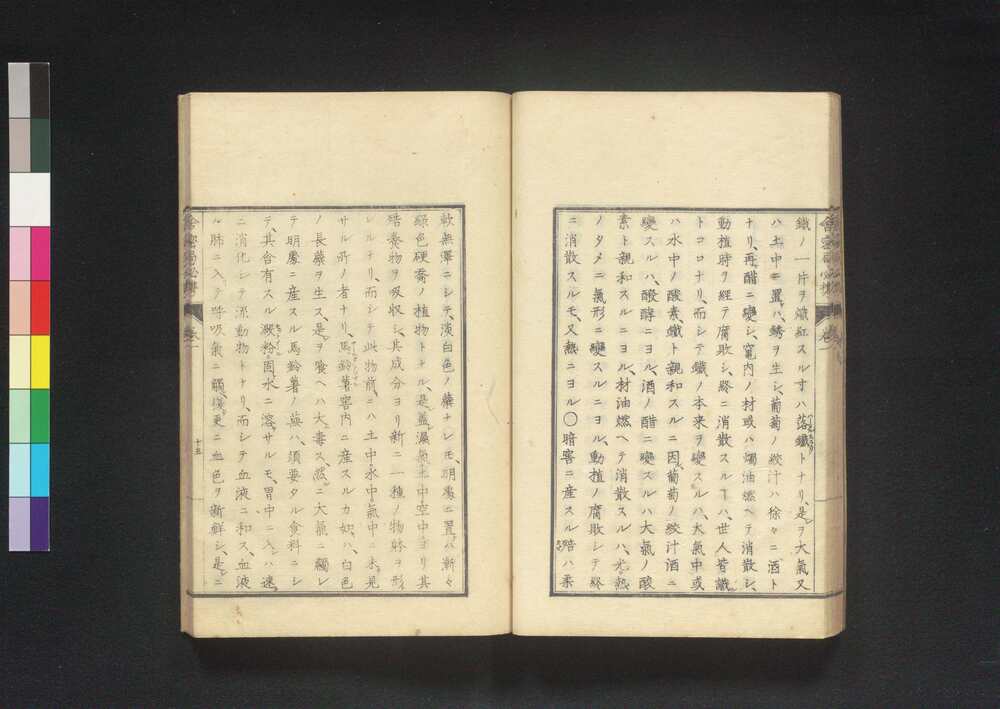 鐵ノ一片ヲ熾紅スルヰハ落鐵トナリ、是ヲ大氣又
ハ土中ニ置ハ、銹ヲ生シ、葡萄ノ絞汁ハ徐々ニ酒ト
ナリ、再醋ニ變シ、竃内ノ材或ハ燭油燃ヘテ消散シ、
動植時ヲ經テ腐敗シ、終ニ消散スルヿハ、世人皆識
トコロナリ、而シテ鐵ノ本来ヲ變スルハ、大氣中或
ハ水中ノ酸素鐵ト親和スルニ因、葡萄ノ絞汁酒ニ
變スルハ、醗酵ニヨル、酒ノ醋ニ變スルハ大氣ノ酸
素ト親和スルニヨル、材油燃ヘテ消散スルハ、光熱
ノタメニ氣形ニ變スルニヨル、動植ノ腐敗シテ終
ニ消散スルモ、又熱ニヨル〇暗窖ニ産スル苔ハ柔
軟無澤ニシテ、淡白色ノ蘂ナレモ、明處ニ置ハ漸々
緑色硬喬ノ植物トナル、是蓋濕氣土中空中ヨリ其
培養物ヲ吸収シ、其成分ヨリ新ニ一種ノ物躰ヲ形
シルナリ、而シテ此物前ニハ土中水中氣中ニ未見
サル所ノ者ナリ、馬鈴薯窖内ニ産スルカ如ハ、白色
ノ長藤ヲ生ス、是ヲ喰ヘハ大毒ス、然ニ大氣ニ觸レ
テ明處ニ産スル馬鈴薯ノ蕪ハ、須要タル食料ニシ
テ、其含有スル澱粉固水ニ溶サルモ、胃中ニ入ハ速
ニ消化シテ流動物トナリ、而シテ血液ニ和ス、血液
ル肺ニ入テ呼吸氣ニ觸復更ニ血色ヲ新鮮シ、是ニ
卷一
十五